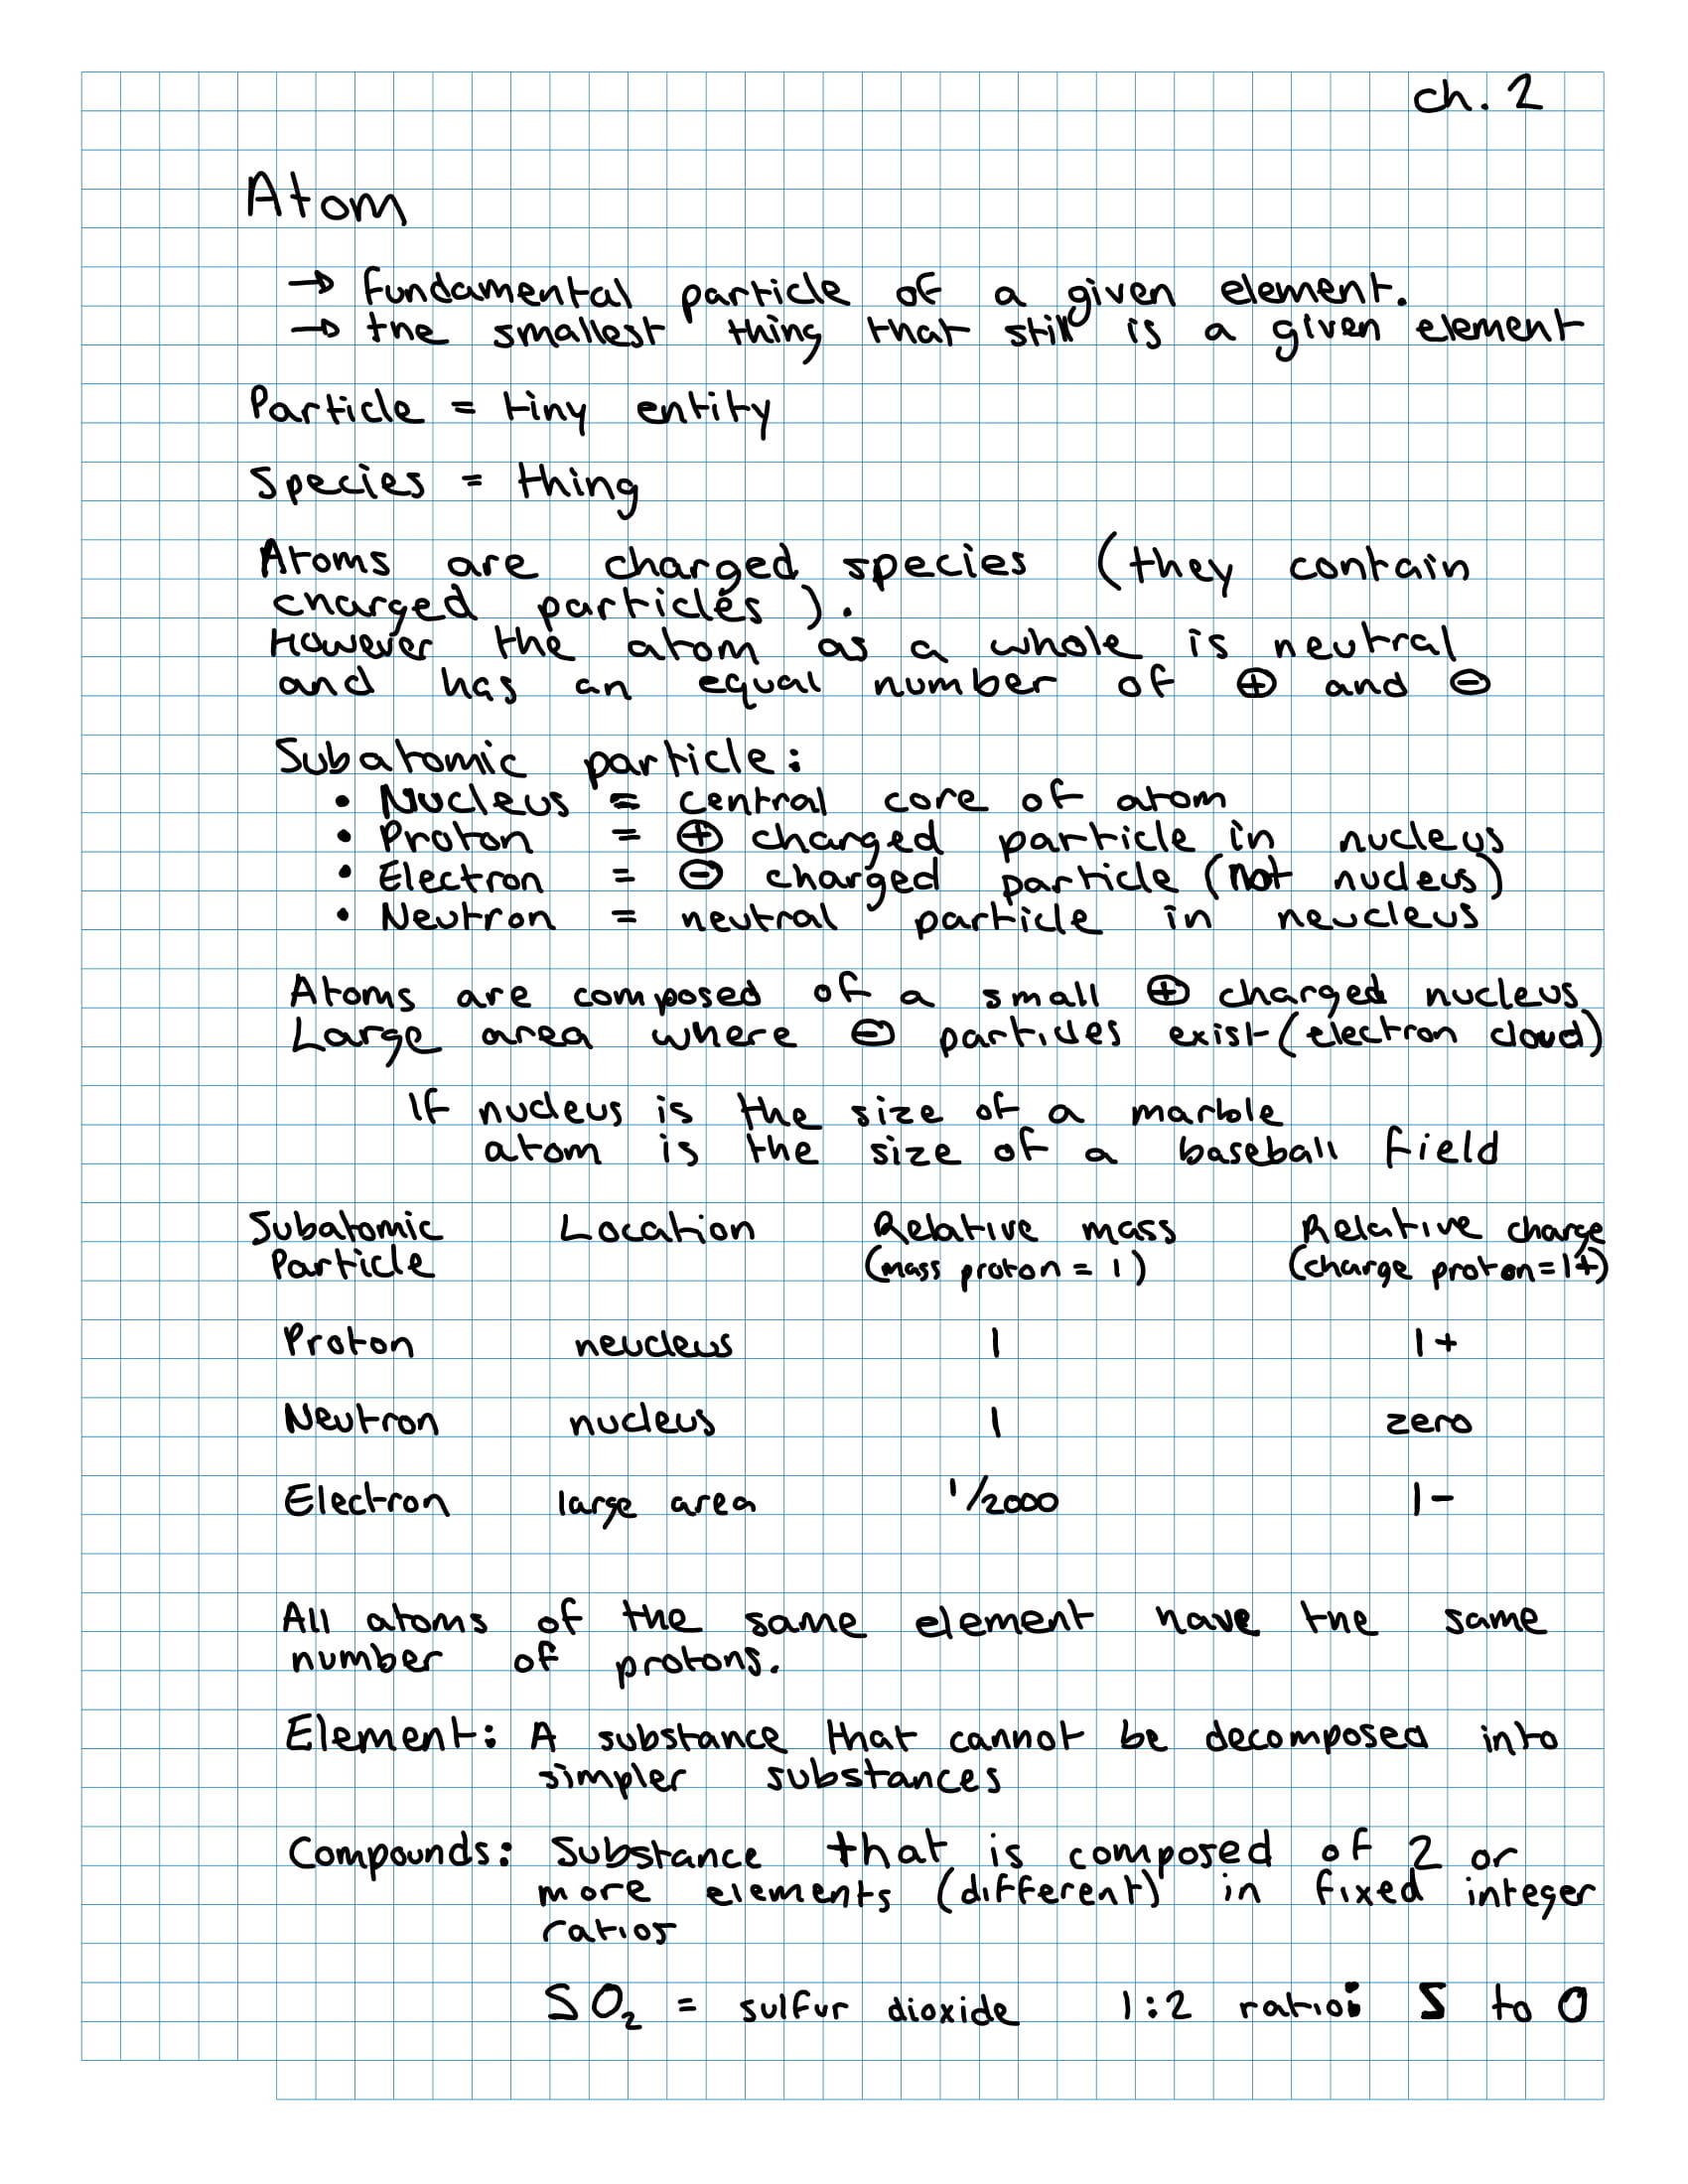 ch. 2
Atom
→ fundamental particle of a given element.
→ the smallest thing that still is a given element
Particle = tiny entity
Species = thing
Atoms are charged species (they contain
charged particles).
However the atom as a whole is neutral
and has an equal number of ⊕ and ⊖
Subatomic particle:
• Nucleus = central core of atom
• Proton = ⊕ charged particle in nucleus
• Electron = ⊖ charged particle (not nucleus)
• Neutron = neutral particle in neucleus
Atoms are composed of a small ⊕ charged nucleus
Large area where ⊖ particles exist (electron cloud)
If nucleus is the size of a marble
atom is the size of a baseball field
Subatomic Particle Location Relative mass (mass proton = 1) Relative charge (charge proton = 1+)
Proton neucleus 1 1+
Neutron nucleus 1 zero
Electron large area 1/2000 1-
All atoms of the same element have the same
number of protons.
Element: A substance that cannot be decomposed into
simpler substances
Compounds: Substance that is composed of 2 or
more elements (different) in fixed integer
ratios
SO₂ = sulfur dioxide 1:2 ratio: S to O